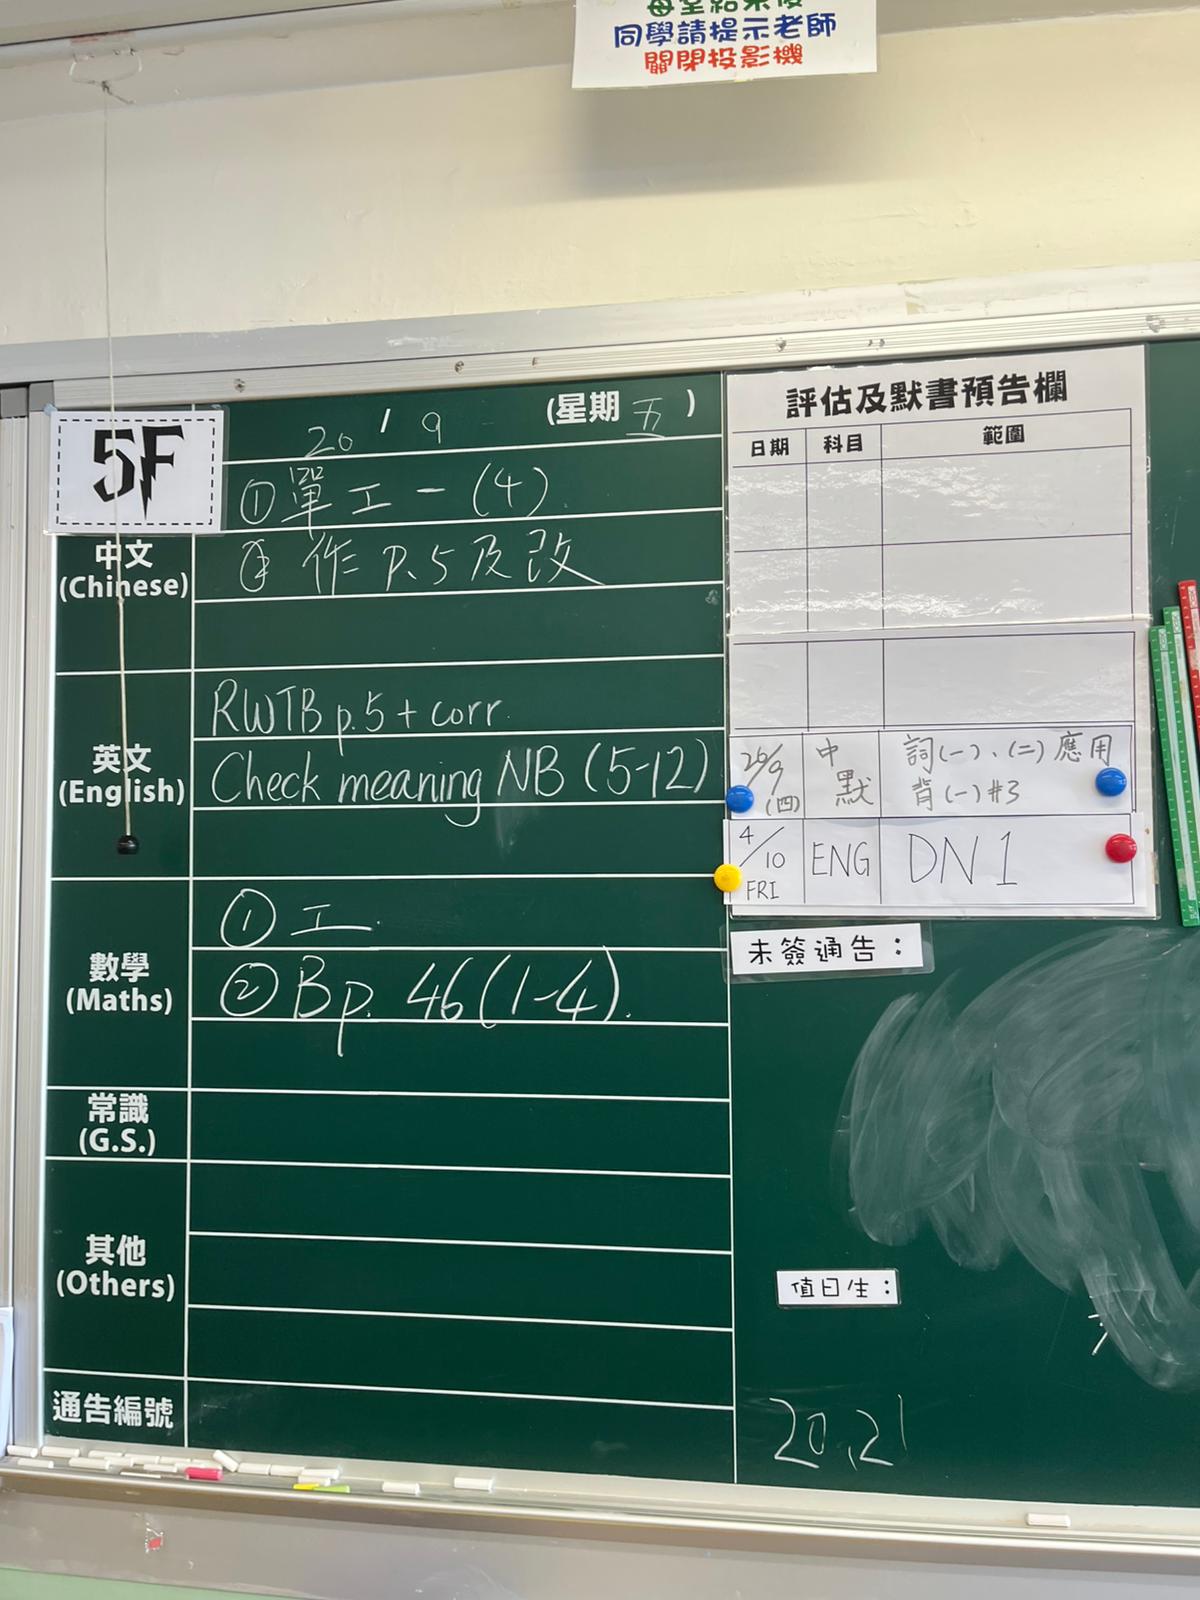 同學請提示老師
關閉投影機
5F
20 / 9 (星期 五 )
中文
(Chinese)
①單工一(4)
② 作 P.5及改
英文
(English)
RWTB p.5 + corr.
Check meaning NB (5-12)
數學
(Maths)
① 工
② B p. 46 (1-4).
常識
(G.S.)
其他
(Others)
通告編號
評估及默書預告欄
日期 科目 範圍
26/9 (四) 中默 詞(一)、(二)應用
背(一)#3
4/10 FRI ENG DN 1
未簽通告：
值日生：
20,21